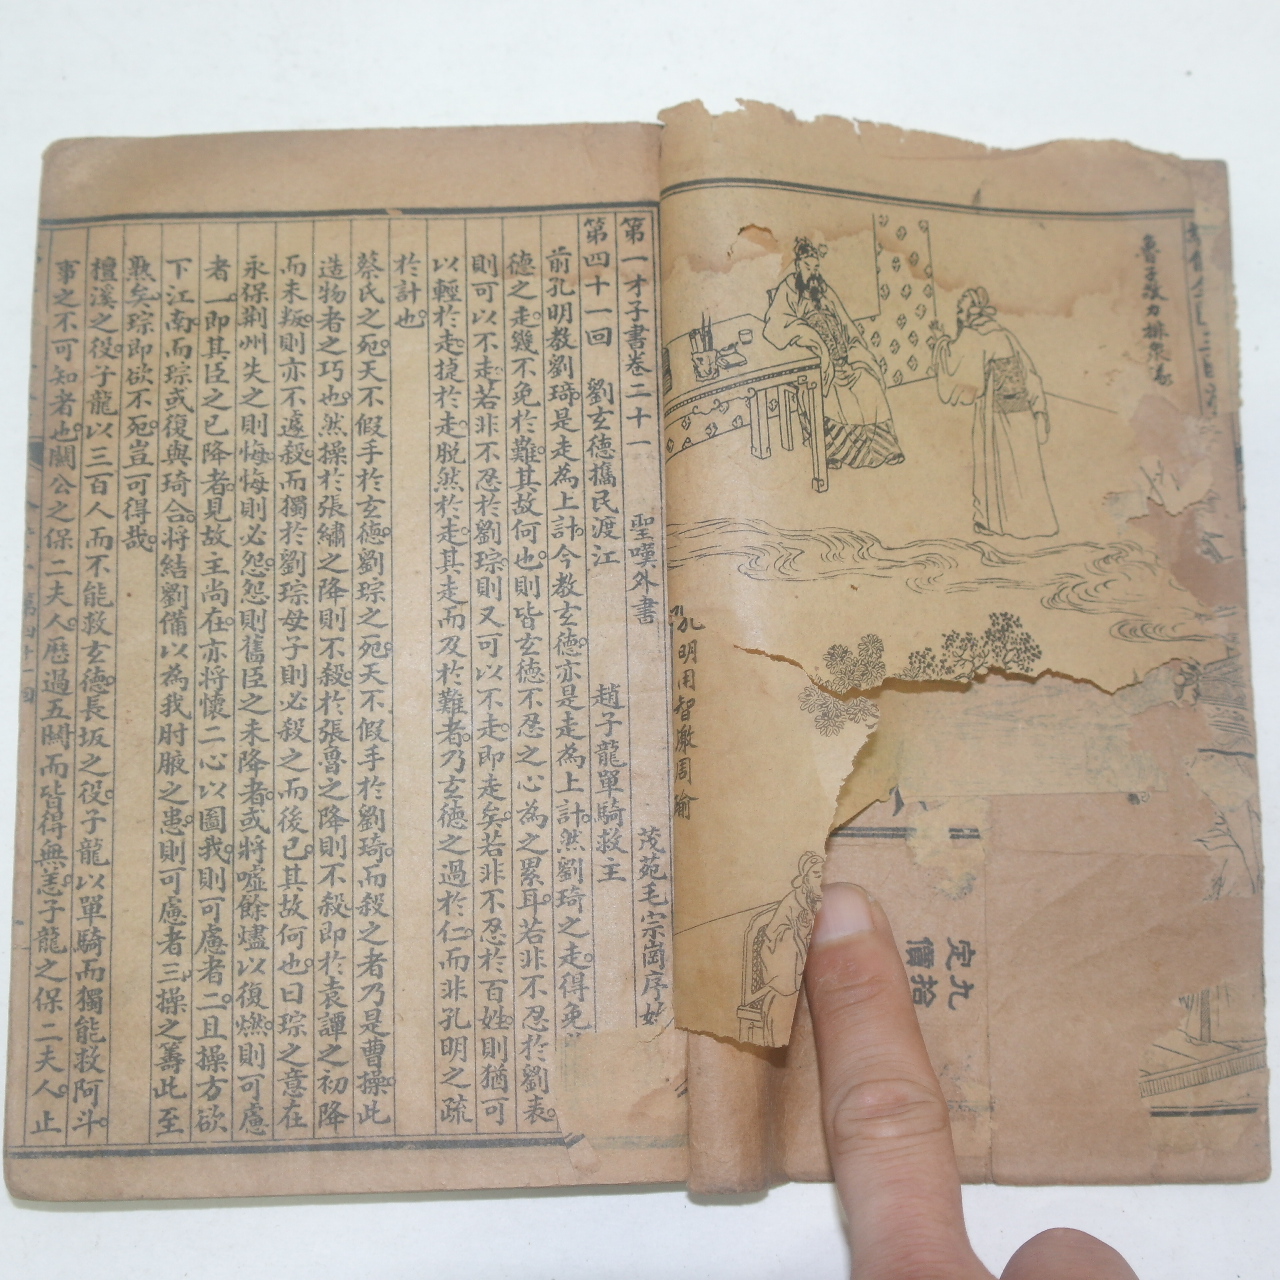 魯子敬力排衆議
孔明用智激周瑜
九拾
定價
第一才子書卷二十一 聖嘆外書 茂苑毛宗崗序始
第四十一回 劉玄德攜民渡江 趙子龍單騎救主
前孔明教劉琦是走為上計今教玄德亦是走為上計然劉琦之走得免
德之走幾不免於難其故何也則皆玄德不忍之心為之累耳若非不忍於劉表
則可以不走若非不忍於劉琮則又可以不走即走矣若非不忍於百姓則猶可
以輕於走捷於走脱然於走其走而及於難者乃玄德之過於仁而非孔明之疏
於計也
蔡氏之死天不假手於玄德劉琮之死天不假手於劉琦而殺之者乃是曹操此
造物者之巧也然操於張繡之降則不殺於張魯之降則不殺即於袁譚之初降
而未叛則亦不遽殺而獨於劉琮母子則必殺之而後已其故何也曰琮之意在
永保荆州失之則悔悔則必怨怨則舊臣之未降者或將噓餘燼以復燃則可慮
者一即其臣之已降者見故主尚在亦將懷二心以圖我則可慮者二且操方欲
下江南而琮或復與琦合將結劉備以為我肘腋之患則可慮者三操之籌此至
熟矣琮即欲不死豈可得哉
檀溪之役子龍以三百人而不能救玄德長坂之役子龍以單騎而獨能救阿斗
事之不可知者也關公之保二夫人歷過五關而皆得無恙子龍之保二夫人止
第四十一回